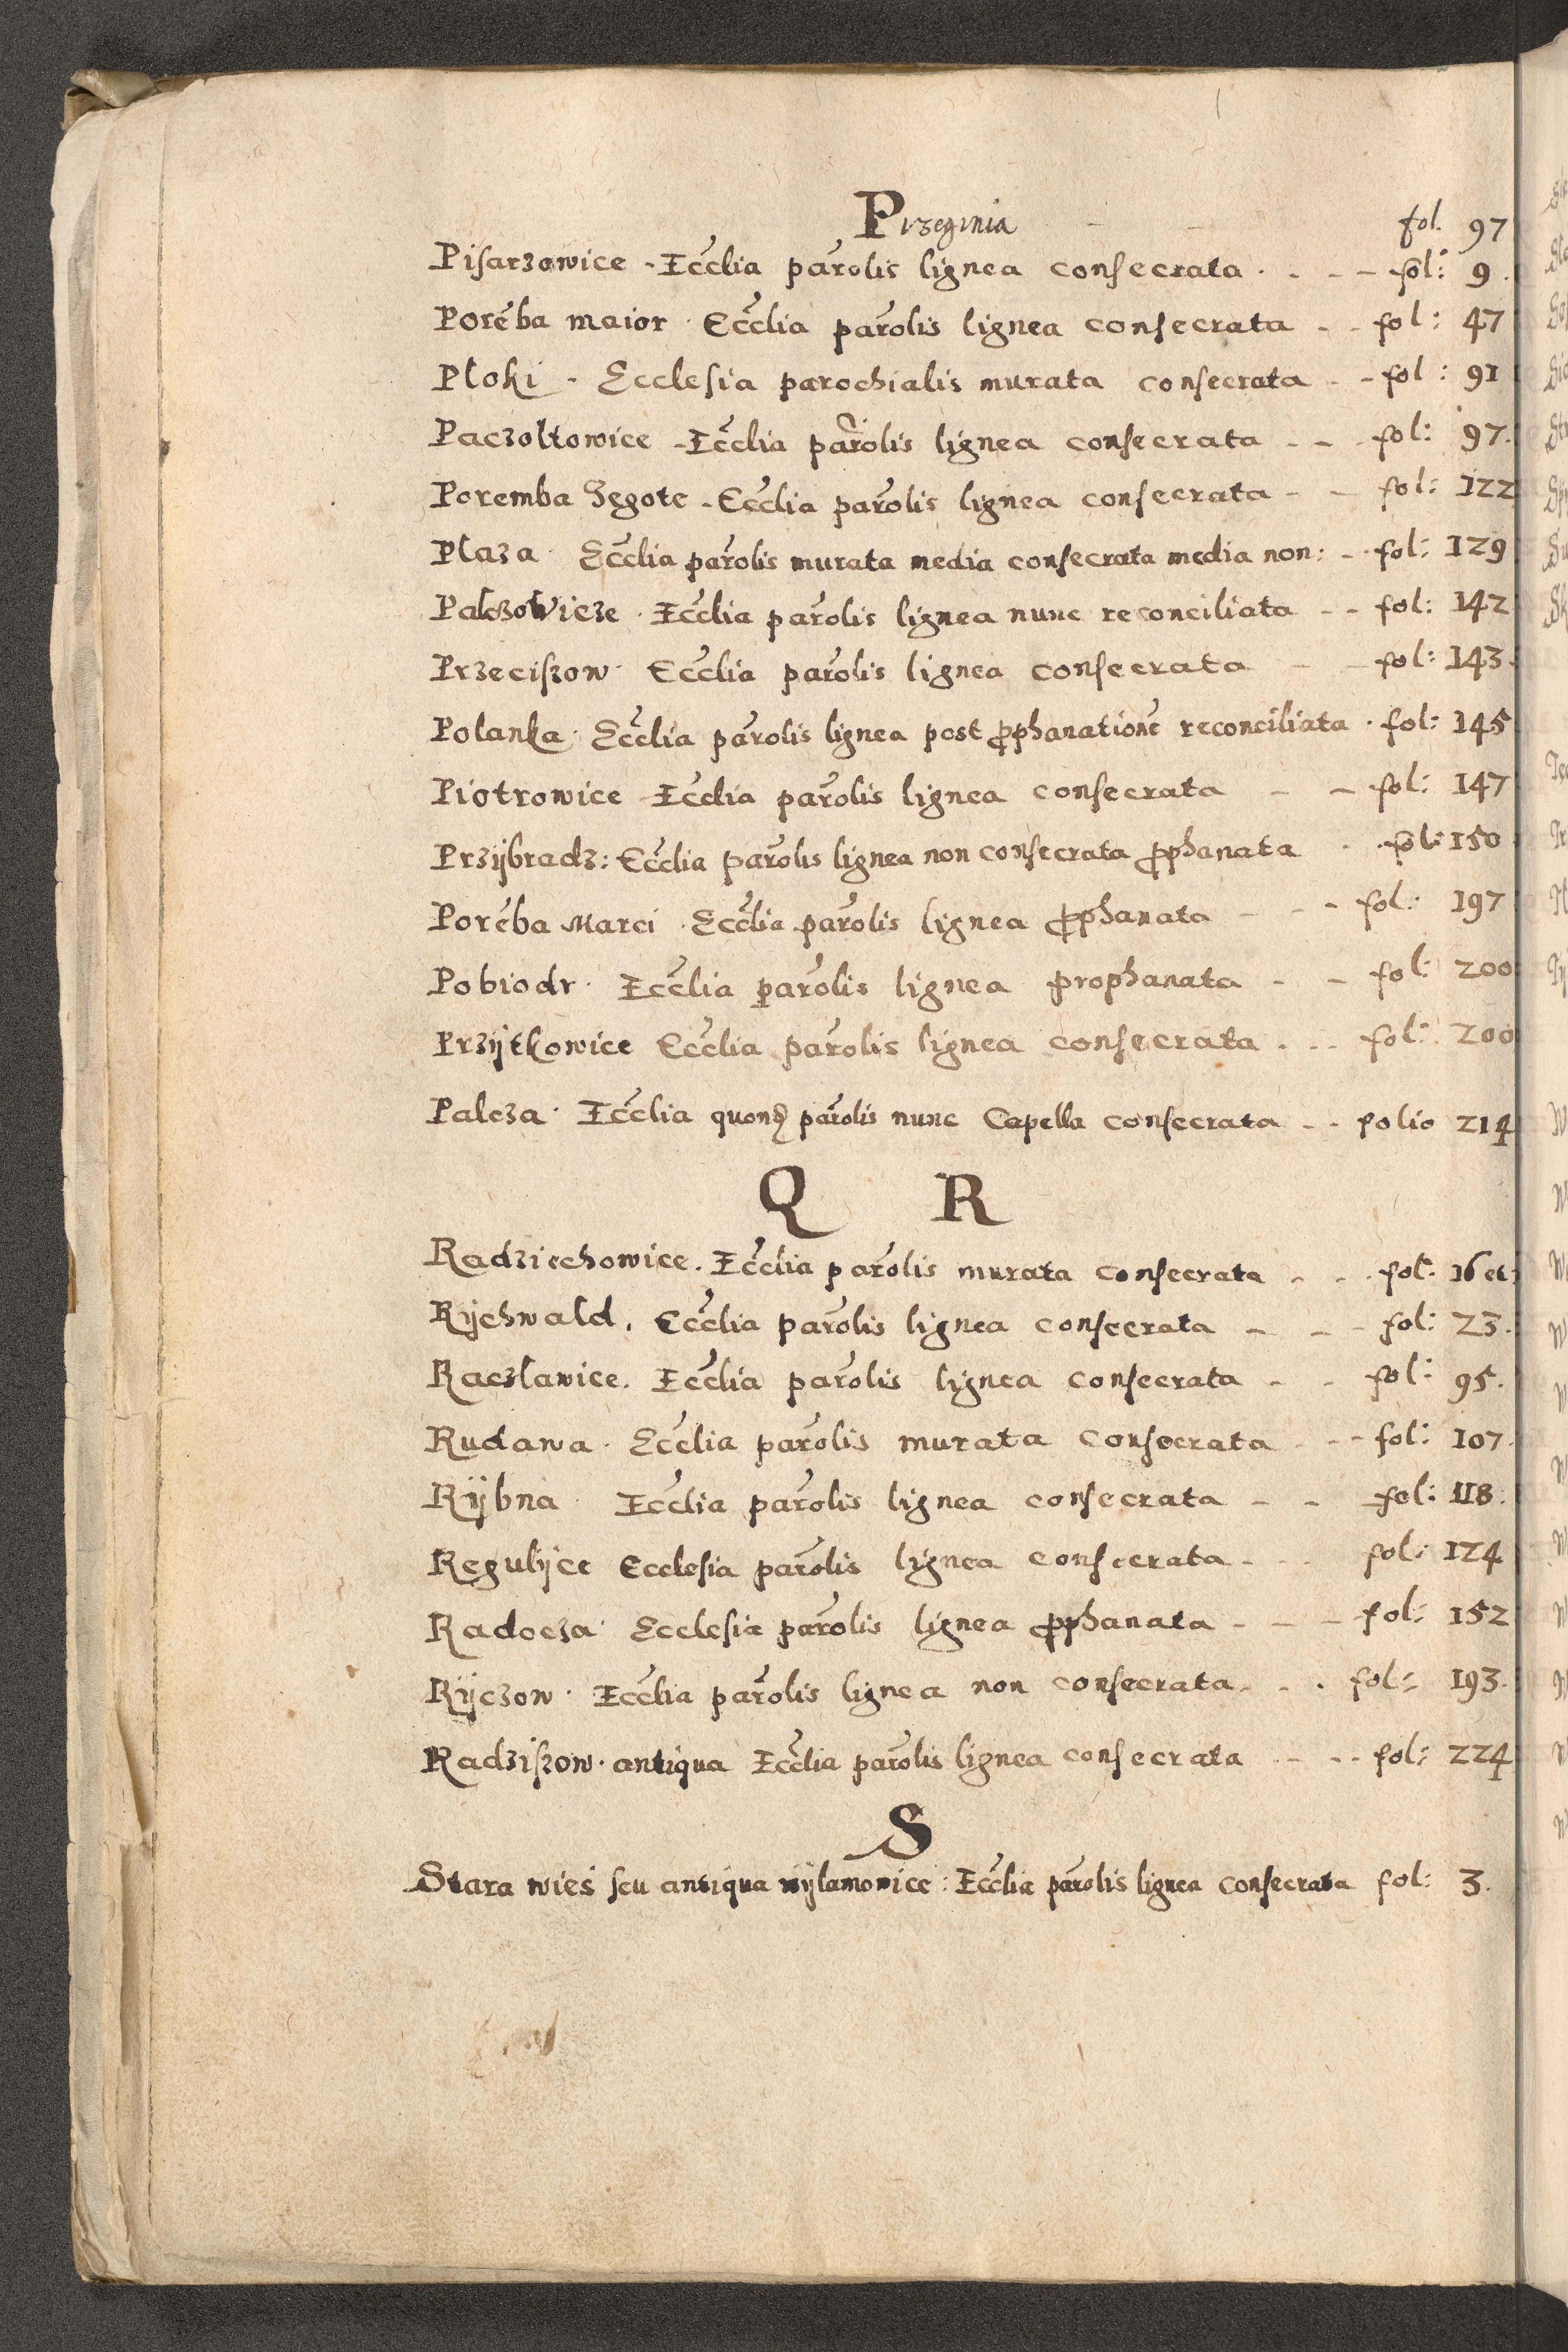 Przeginia - - fol. 97
Pisarzowice - Eccłia parolis lignea consecrata . - - - fol: 9.
Porēba maior . Eccłia parolis lignea consecrata - - fol: 47
Płoki - Ecclesia parochialis murata consecrata - - fol: 91
Paczoltowice - Eccłia parolis lignea consecrata - - fol: 97.
Poremba Zegote - Eccłia parolis lignea consecrata - - fol: 122
Płaza . Eccłia parolis murata media consecrata media non: - . fol: 129
Palczowicze . Eccłia parolis lignea nunc reconciliata - - fol: 142
Przeciszow . Eccłia parolis lignea consecrata - - fol: 143.
Polanka . Eccłia parolis lignea post ꝓphanationē reconciliata . fol: 145
Piotrowice - Eccłia parolis lignea consecrata - - fol: 147
Przÿbradz: Eccłia parolis lignea non consecrata ꝓphanata . . fol: 150
Porēba Marci . Eccłia parolis lignea ꝓphanata - - - fol: 197
Pobiodr . Eccłia parolis lignea prophanata - - fol: 200
Przÿtkowice Eccłia parolis lignea consecrata . . - fol: 200
Palcza . Eccłia quond parolis nunc Capella consecrata - - folio 214
Q R
Radziechowice . Eccłia parolis murata consecrata - . . fol: 16 et
Rÿchwald . Eccłia parolis lignea consecrata - - - fol: 23.
Raczlawice . Eccłia parolis lignea consecrata - - fol: 95.
Rudawa . Eccłia parolis murata consecrata - - - fol: 107.
Rÿbna . Eccłia parolis lignea consecrata - - fol: 118.
Regulÿce Ecclesia parolis lignea consecrata - - . fol: 124
Radocza . Ecclesia parolis lignea ꝓphanata - - - fol: 152
Rÿczow . Eccłia parolis lignea non consecrata - . . fol: 193.
Radziszow . antiqua Eccłia parolis lignea consecrata - - - fol: 224
S
Stara wieś seu antiqua wÿlamowice : Eccłia parolis lignea consecrata fol: 3.